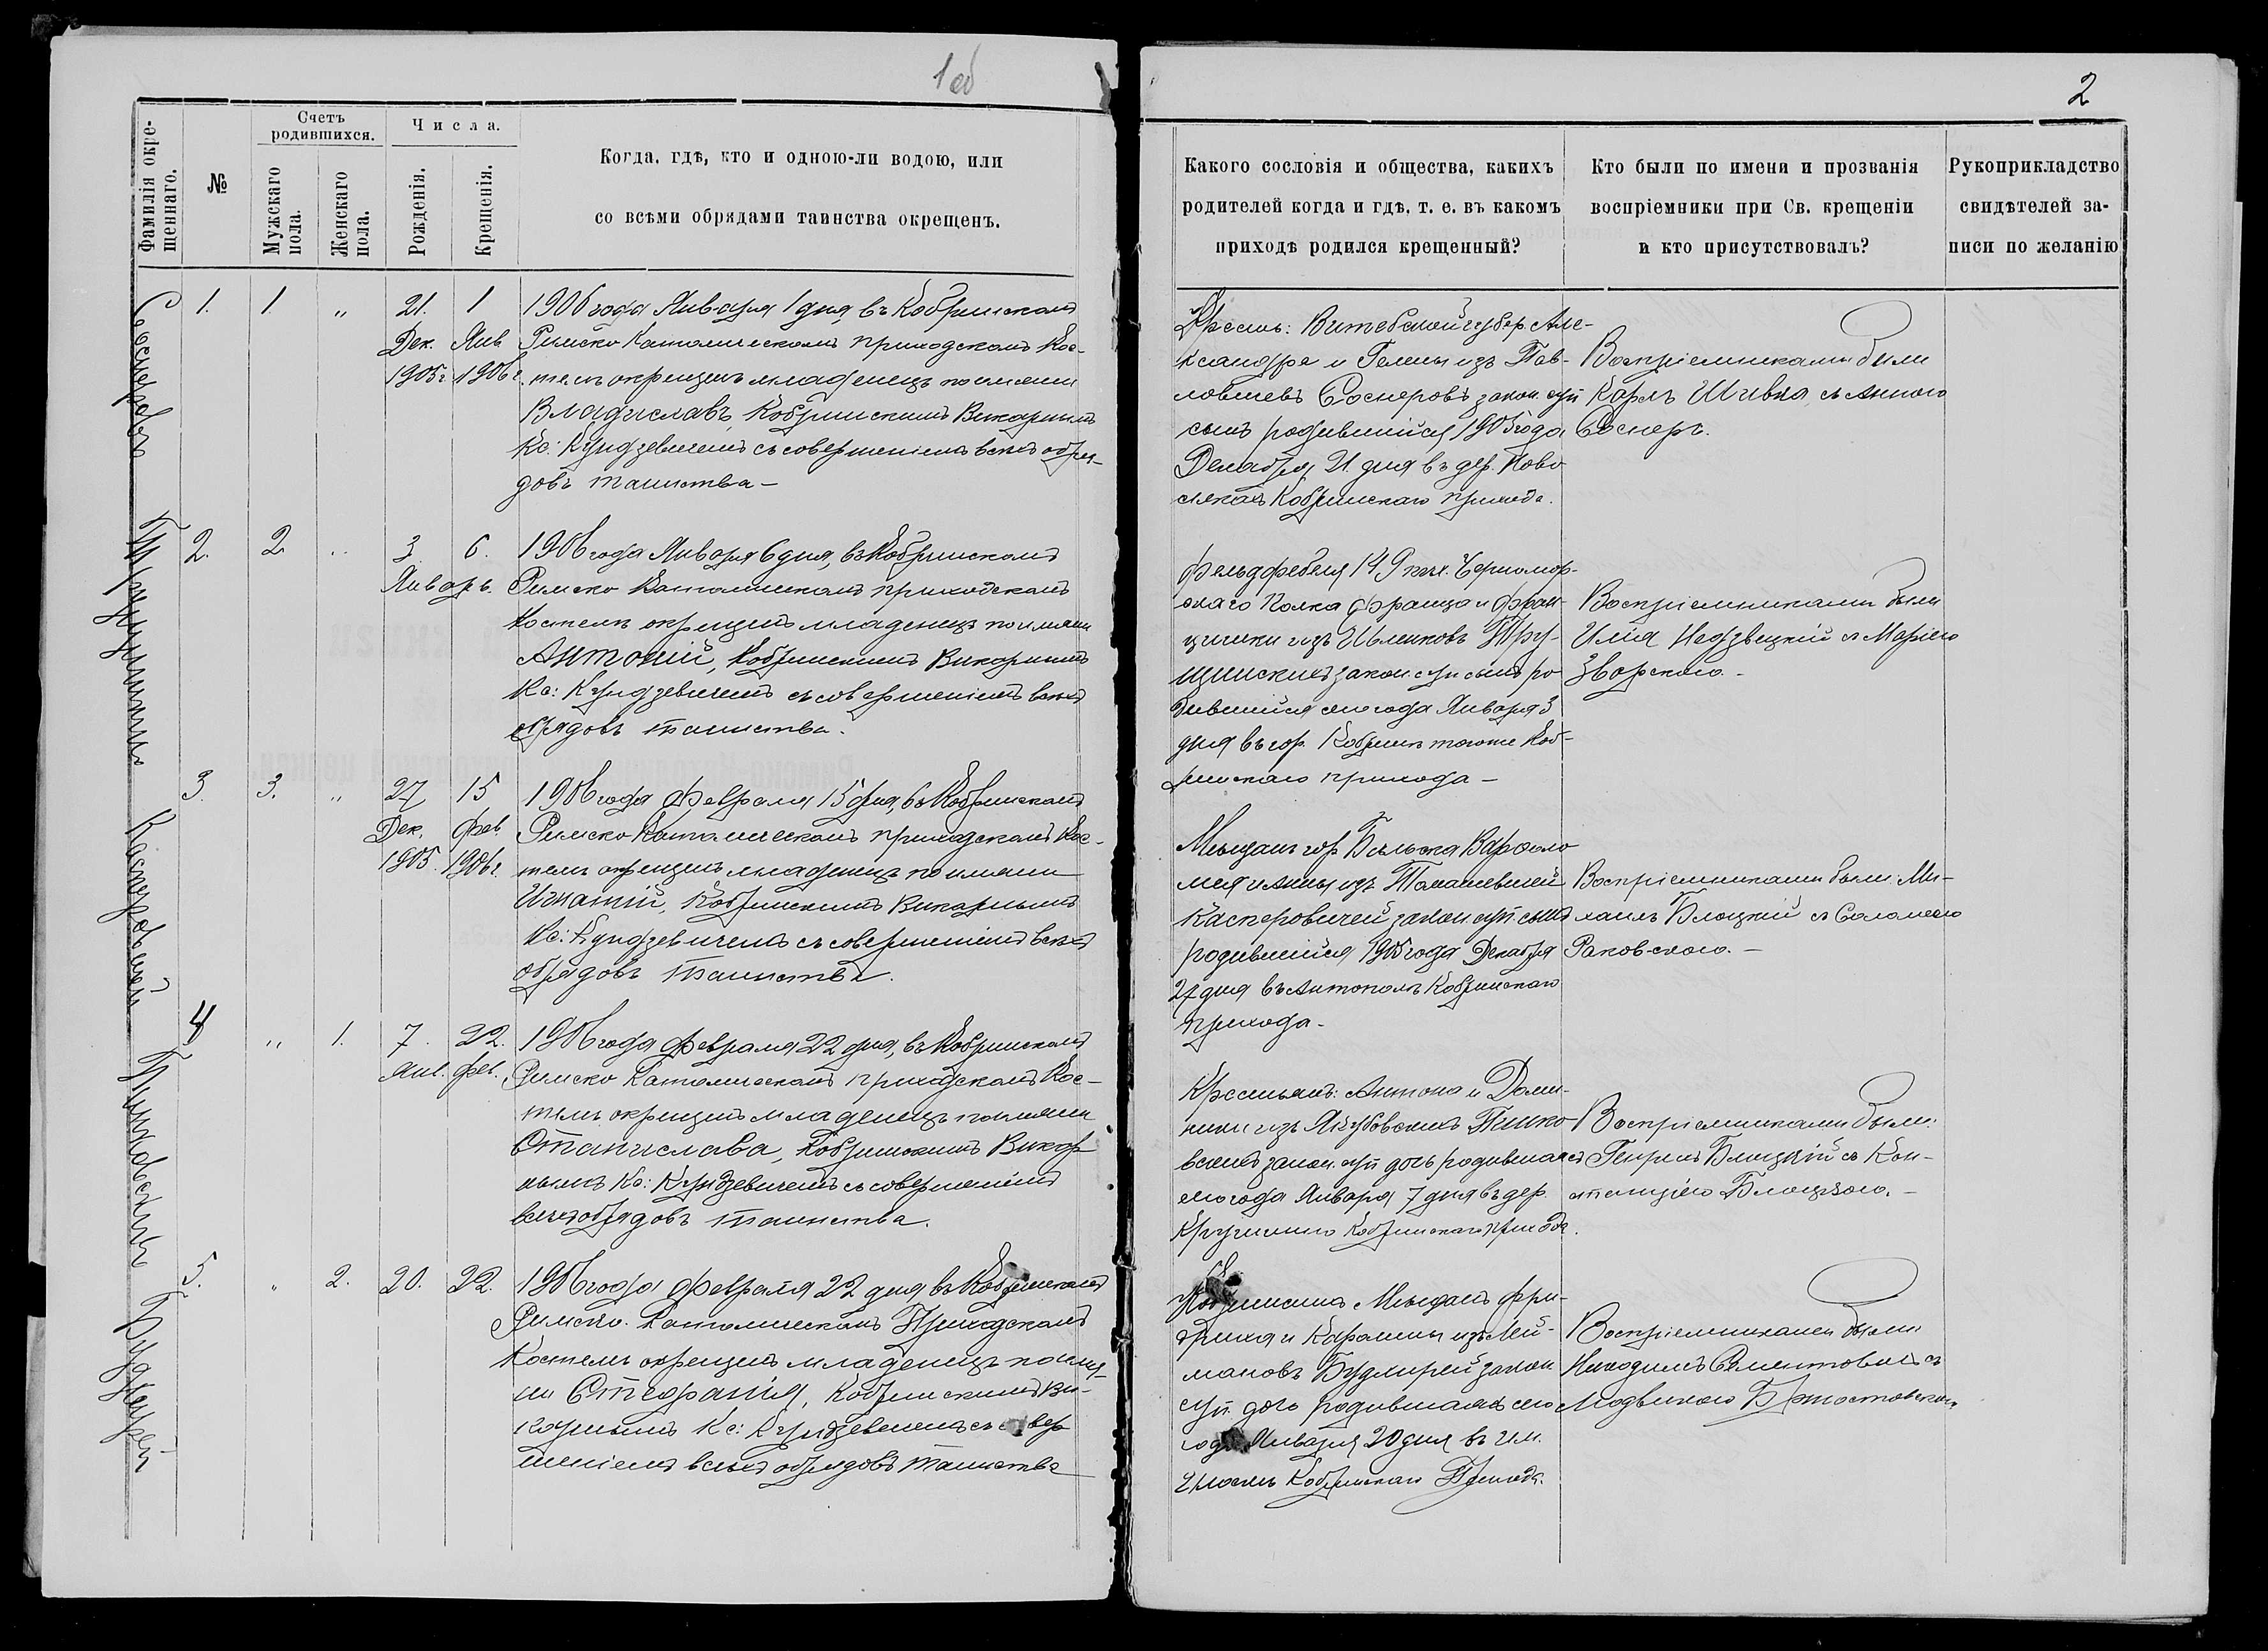 1 об
Фамилія окре-
щеннаго.
№
Счетъ
родившихся.
Мужскаго
пола.
Женскаго
пола.
Числа.
Рожденія.
Крещенія.
Когда, гдѣ, кто и одною-ли водою, или
со всѣми обрядами таинства окрещенъ.
1. 1. „ 21. 1
Дек. Янв
1905 г. 1906 г.
1906 года Января 1 дня, въ Кобринскомъ
Римско Католическомъ приходскомъ Кос-
телѣ окрещенъ младенецъ по имени
Владиславъ, Кобринскимъ Викарнымъ
Кс: Кундзевичемъ съ совершеніемъ всѣхъ обря-
довъ таинства –
2. 2 „ 3 6.
Январь.
1906 года Января 6 дня, въ Кобринскомъ
Римско Католическомъ приходскомъ
Костелѣ окрещенъ младенецъ по имени
Антоній, Кобринскимъ Викарнымъ
Кс: Кундзевичемъ съ совершеніемъ всѣхъ
обрядовъ таинства.
3. 3. „ 27 15
Дек. Фев.
1905. 1906 г.
Касперовичей
1906 года Февраля 15 дня, въ Кобринскомъ
Римско Католическомъ приходскомъ Кос-
телѣ окрещенъ младенецъ по имени
Игнатій, Кобринскимъ Викарнымъ
Кс: Кундзевичемъ съ совершеніемъ всѣхъ
обрядовъ таинства.
4 „ 1. 7. 22.
Янв. Фев.
Пинковскихъ
1906 года Февраля 22 дня, въ Кобринскомъ
Римско Католическомъ приходскомъ Кос-
телѣ окрещенъ младенецъ по имени
Станислава, Кобринскимъ Викар
нымъ Кс: Кундзевичемъ съ совершеніемъ
всѣхъ обрядовъ таинства.
5. „ 2. 20. 22.
1906 года Февраля 22 дня въ Кобринскомъ
Римско-Католическомъ Приходскомъ
Костелѣ окрещенъ младенецъ по име
ни Стефанія, Кобринскимъ Ви-
карнымъ Кс: Кундзевичемъ съ совер
шеніемъ всѣхъ обрядовъ таинства
2
Какого сословія и общества, какихъ
родителей когда и гдѣ, т. е. въ какомъ
приходѣ родился крещенный?
Кто были по имени и прозванія
воспріемники при Св. крещеніи
и кто присутствовалъ?
Рукоприкладство
свидѣтелей за-
писи по желанію
Витебской губер. Але-
ксандра и Гелены изъ Пав-
закон. суп
сынъ родившійся 1905 года
Декабря 21 дня въ дер. Ново
Кобринскаго прихода.
Воспріемниками были
Карлъ съ Анною
Фельдфебеля 149 пѣх. Черномор-
скаго Полка Франца и Фран-
цишки изъ
закон. суп сынъ ро
дившійся сего года Января 3
дня въ гор. Кобринѣ тогоже Коб-
ринскаго прихода –
Воспріемниками были
Илія Недзвецкій съ Маріею
Зворскою. –
Мѣщанъ гор Бѣльска Варфоло
мея и Анны изъ
Касперовичей закон суп. сынъ
родившійся 1905 года Декабря
27 дня въ Антополѣ Кобринскаго
прихода –
Воспріемниками были: Ми-
хаилъ Блоцкій съ Саломеею
Раковскою. –
Крестьянъ: Антона и Доми-
ники изъ Якубовскихъ Пинко
вскихъ закон. суп дочь родившаяся
сего года Января 7 дня въ дер.
Кобринскаго Прихода.
Воспріемниками были:
Генрихъ Блоцкій съ Кон-
станціею Блоцкою. –
Кобринскихъ Мѣщанъ Фри-
дриха и Каролины изъ Лей-
мановъ закон
суп. дочь родившаяся сего
года Января 20 дня въ им.
Кобринскаго Прихода.
Воспріемниками были
Никодимъ съ